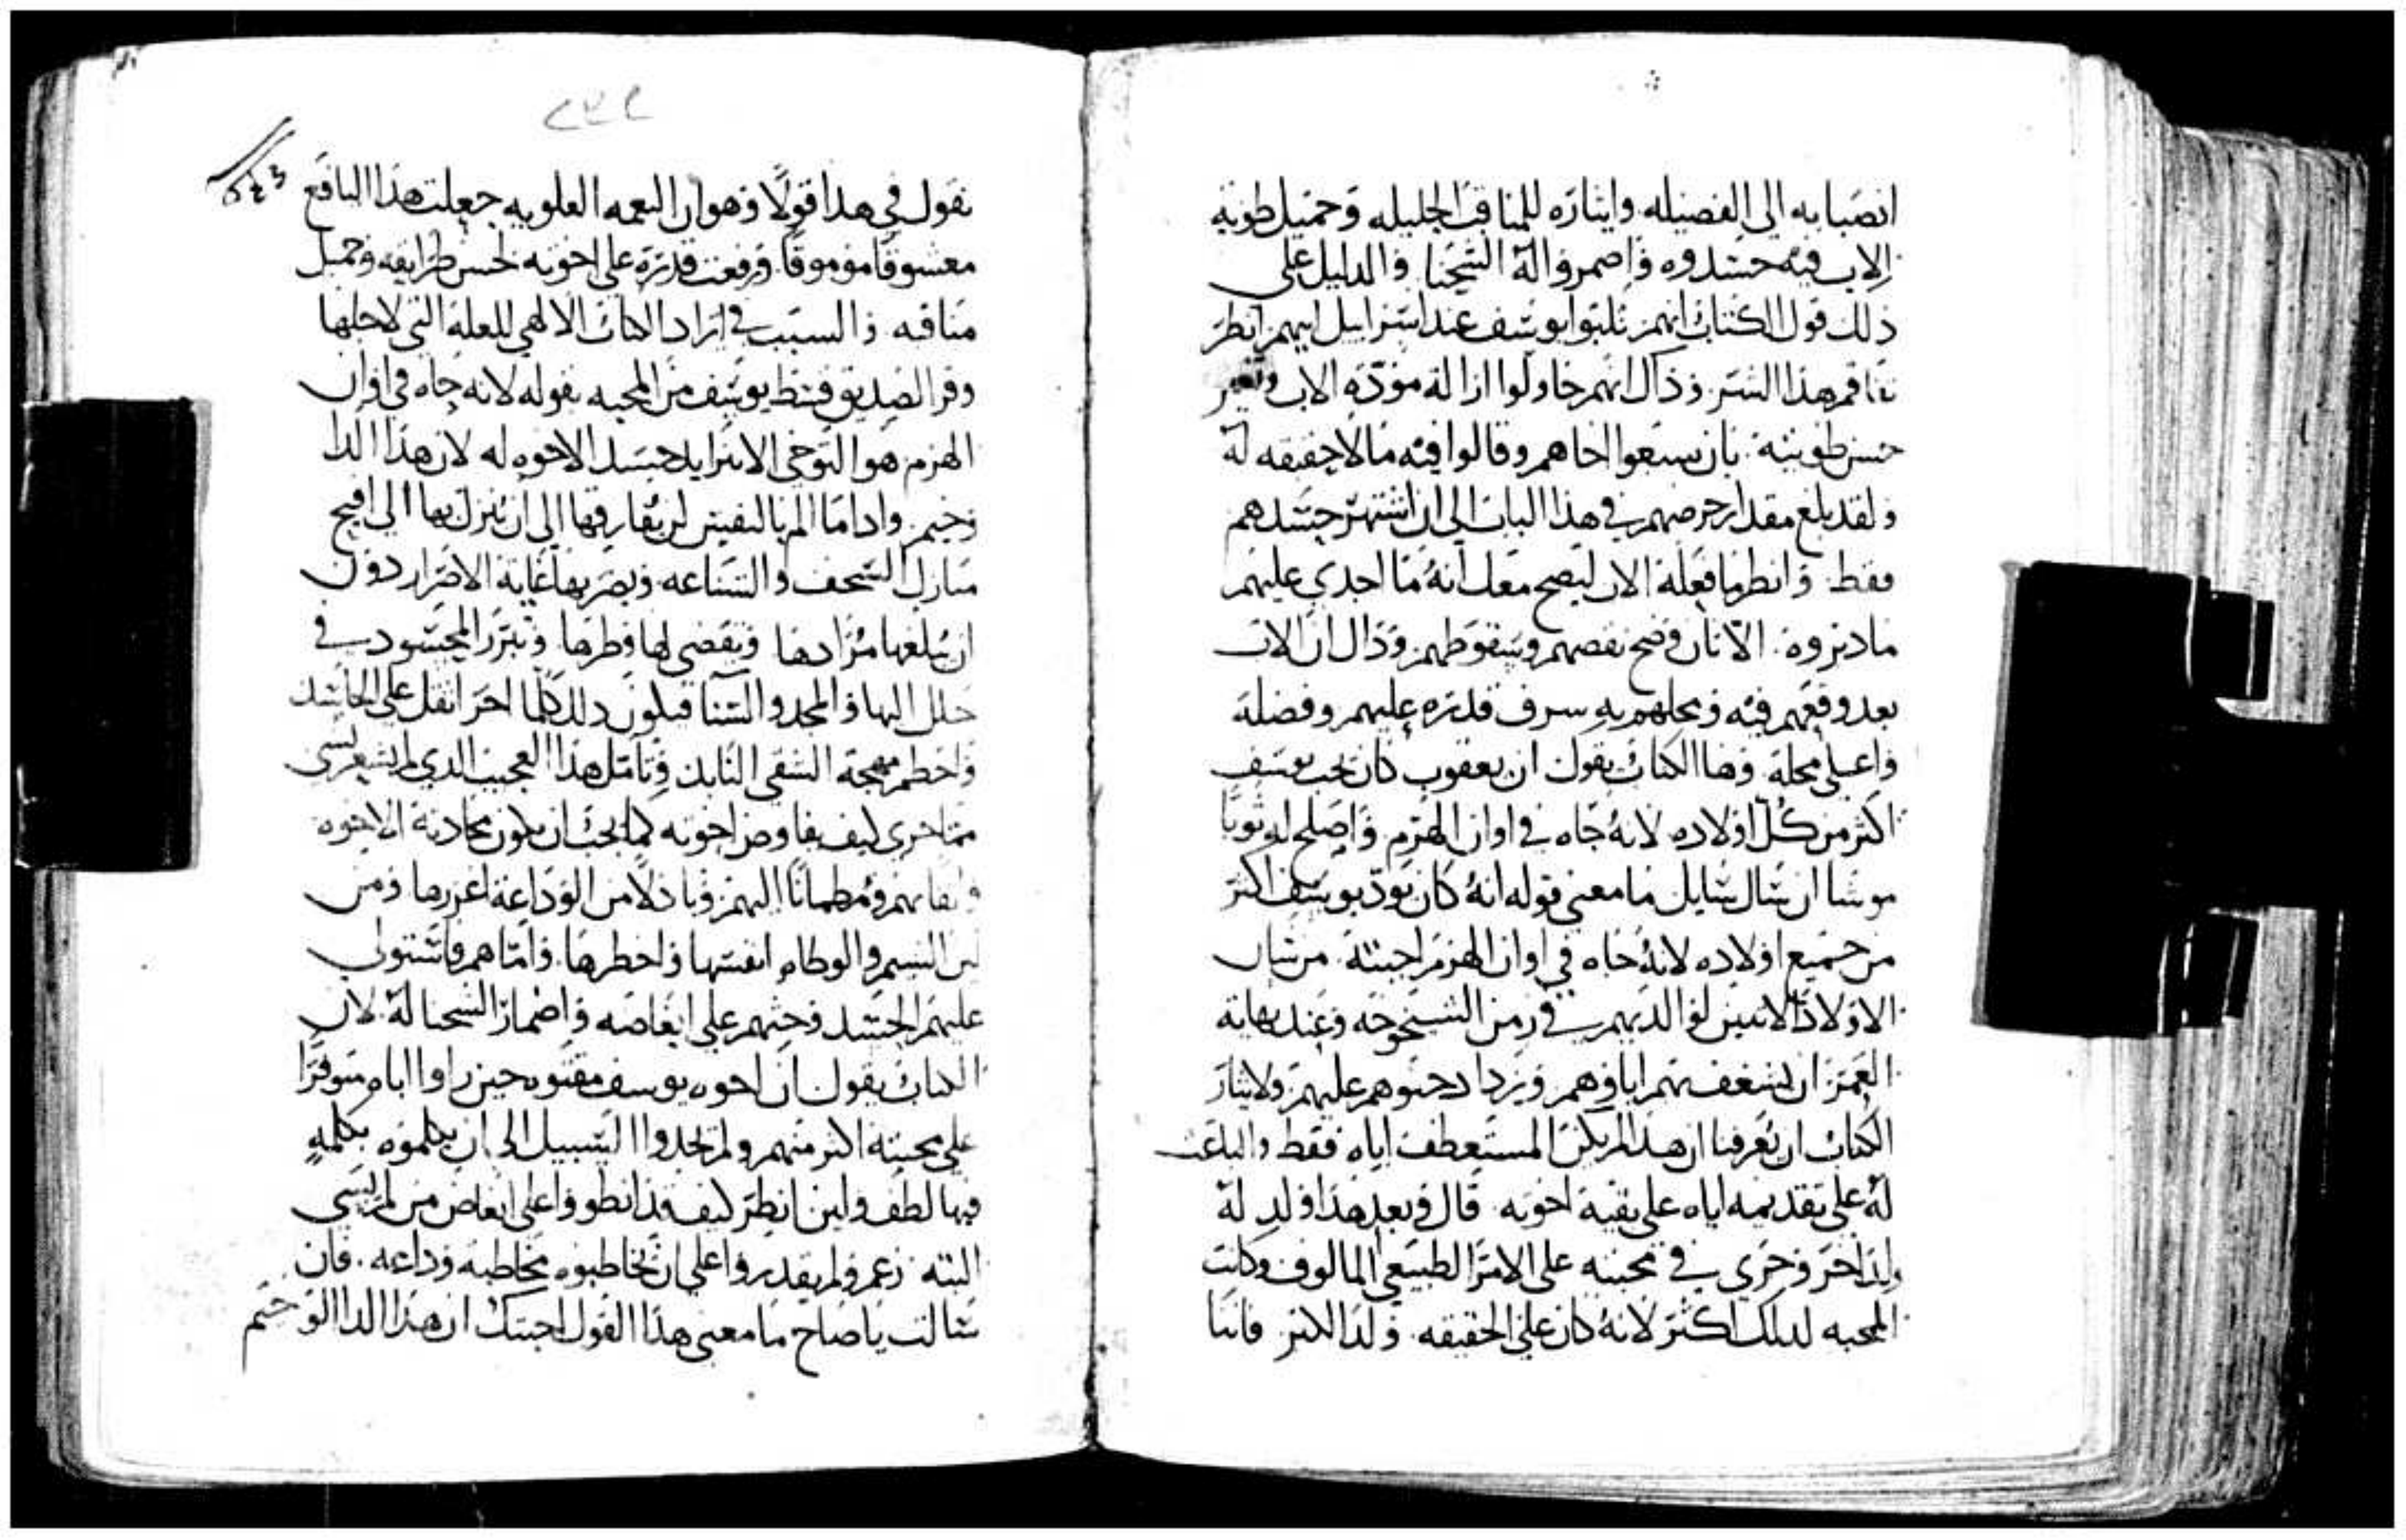 انصبابه الى الفضيله وايثاره للمناقب الجليله وجميل طوية
الاب فيه حسدوه واضمروا له الشحنا والدليل على
ذلك قول الكتاب انهم ثلبوا يوسف عند اسراييل ابيهم انظر
تفاقم هذا الشر وذاك انهم حاولوا ازالة مودة الاب وتغيير
حسن طويته بان يسبعوا اخاهم وقالوا فيه ما لا حقيقه له
ولقد بلغ مقدار حرصهم في هذا الباب الى ان اشتهر حسدهم
فقط وانظر ما فعله الان ليصح معك انه ما اجدي عليهم
ما دبروه الا بان وضح نقصهم وسقوطهم وذاك ان الاب
بعد وقعهم فيه وبحلهم به سرف قدره عليهم وفضله
واعلى محله وها الكتاب يقول ان يعقوب كان يحب يوسف
اكثر من كل اولاده لانه جاه في اوان الهرم واصلح له ثوبا
موشا ان سال سايل ما معنى قوله انه كان يود يوسف اكثر
من جميع اولاده لانه جاه في اوان الهرم اجبته من شان
الاولاد الاتيين لوالديهم في زمن الشيخوخه وعند نهاية
العمر ان يشغف بهم اباوهم ويزداد حنوهم عليهم ولايثار
الكتاب ان يعرفنا ان هذا لم يكن المستعطف اباه فقط والباعث
له على تقديمه اياه على بقية اخوته قال وبعد هذا ولد له
ولد اخر وجرى في محبته على الامر الطبيعي المالوف وكانت
المحبه لذلك اكثر لانه كان على الحقيقه ولد الكبر فاننا
٢٤٢
نقول في هذا قولا وهو ان النعمه العلويه جعلت هذا اليافع
معشوقا موموقا ورفعت قدره على اخوته لحسن طرايقه وجميل
مناقبه والسبب في ايراد الكتاب الالهي للعله التي لاجلها
وفر الصديق قسط يوسف من المحبه بقوله لانه جاه في اوان
الهرم هو التوخي الا يتزايد حسد الاخوه له لان هذا الدا
وخيم واذا ما الم بالنفس لن يفارقها الى ان ينزل بها الى اقبح
منازل السخف والشناعه ويضر بها غاية الاضرار دون
ان يبلغها مرادها ويقضي لها وطرها ويبرز المحسود في
حلل البها والمجد والسنا فيكون ذلك كلما اخر اثقل على الحاسد
واحطم لمهجة الشقي النابذ وتامل هذا العجيب الذي لم يشعر بشي
مما جري كيف يفاوض اخوته كما يجب ان يكون محادثة الاخوه
واثقا بهم ومطمانا اليهم وباذلا من الوداعة اغزرها ومن
لين الشيم والوطاه انفسها واخطرها واما هم فاستولى
عليهم الحسد وحثهم على ابغاضه واضمار الشحنا له لان
الكتاب يقول ان اخوه يوسف مقتوه حين راوا اباه متوفرا
على محبته اكثر منهم ولم يجدوا السبيل الى ان يكلموه بكلمه
فيها لطف ولين انظر كيف قد انطووا على ابغاض من لم يسي
البته زعم ولم يقدروا على ان يخاطبوه مخاطبة وداعه فان
سالت يا صاح ما معنى هذا القول اجبتك ان هذا الدا الوخيم